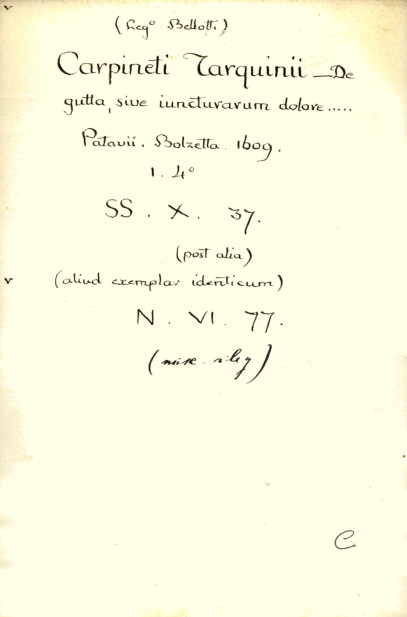 (Leg.º Bellotti)
Carpineti Tarquinii — De
gutta, sive iuncturarum dolore.....
Patavii. Bolzetta. 1609.
1. 4º
SS. X. 37.
(post alia)
v (aliud exemplar identicum)
N. VI. 77.
(misc.
C